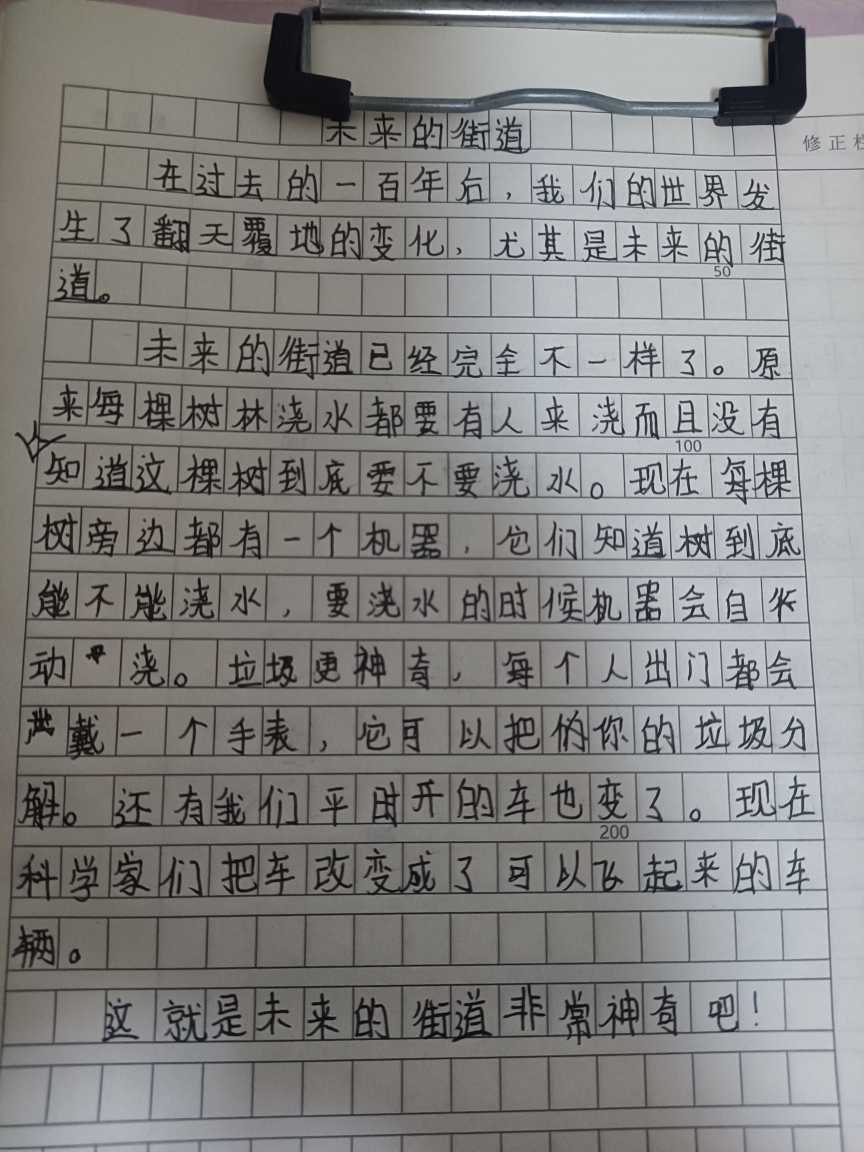 未来的街道
修正栏
在过去的一百年后，我们的世界发
生了翻天覆地的变化，尤其是未来的街
50
道。
未来的街道已经完全不一样了。原
来每棵树林浇水都要有人来浇而且没有
100
知道这棵树到底要不要浇水。现在每棵
树旁边都有一个机器，它们知道树到底
能不能浇水，要浇水的时候机器会自
动浇。垃圾更神奇，每个人出门都会
戴一个手表，它可以把你的垃圾分
解。还有我们平时开的车也变了。现在
200
科学家们把车改变成了可以飞起来的车
辆。
这就是未来的街道非常神奇吧！